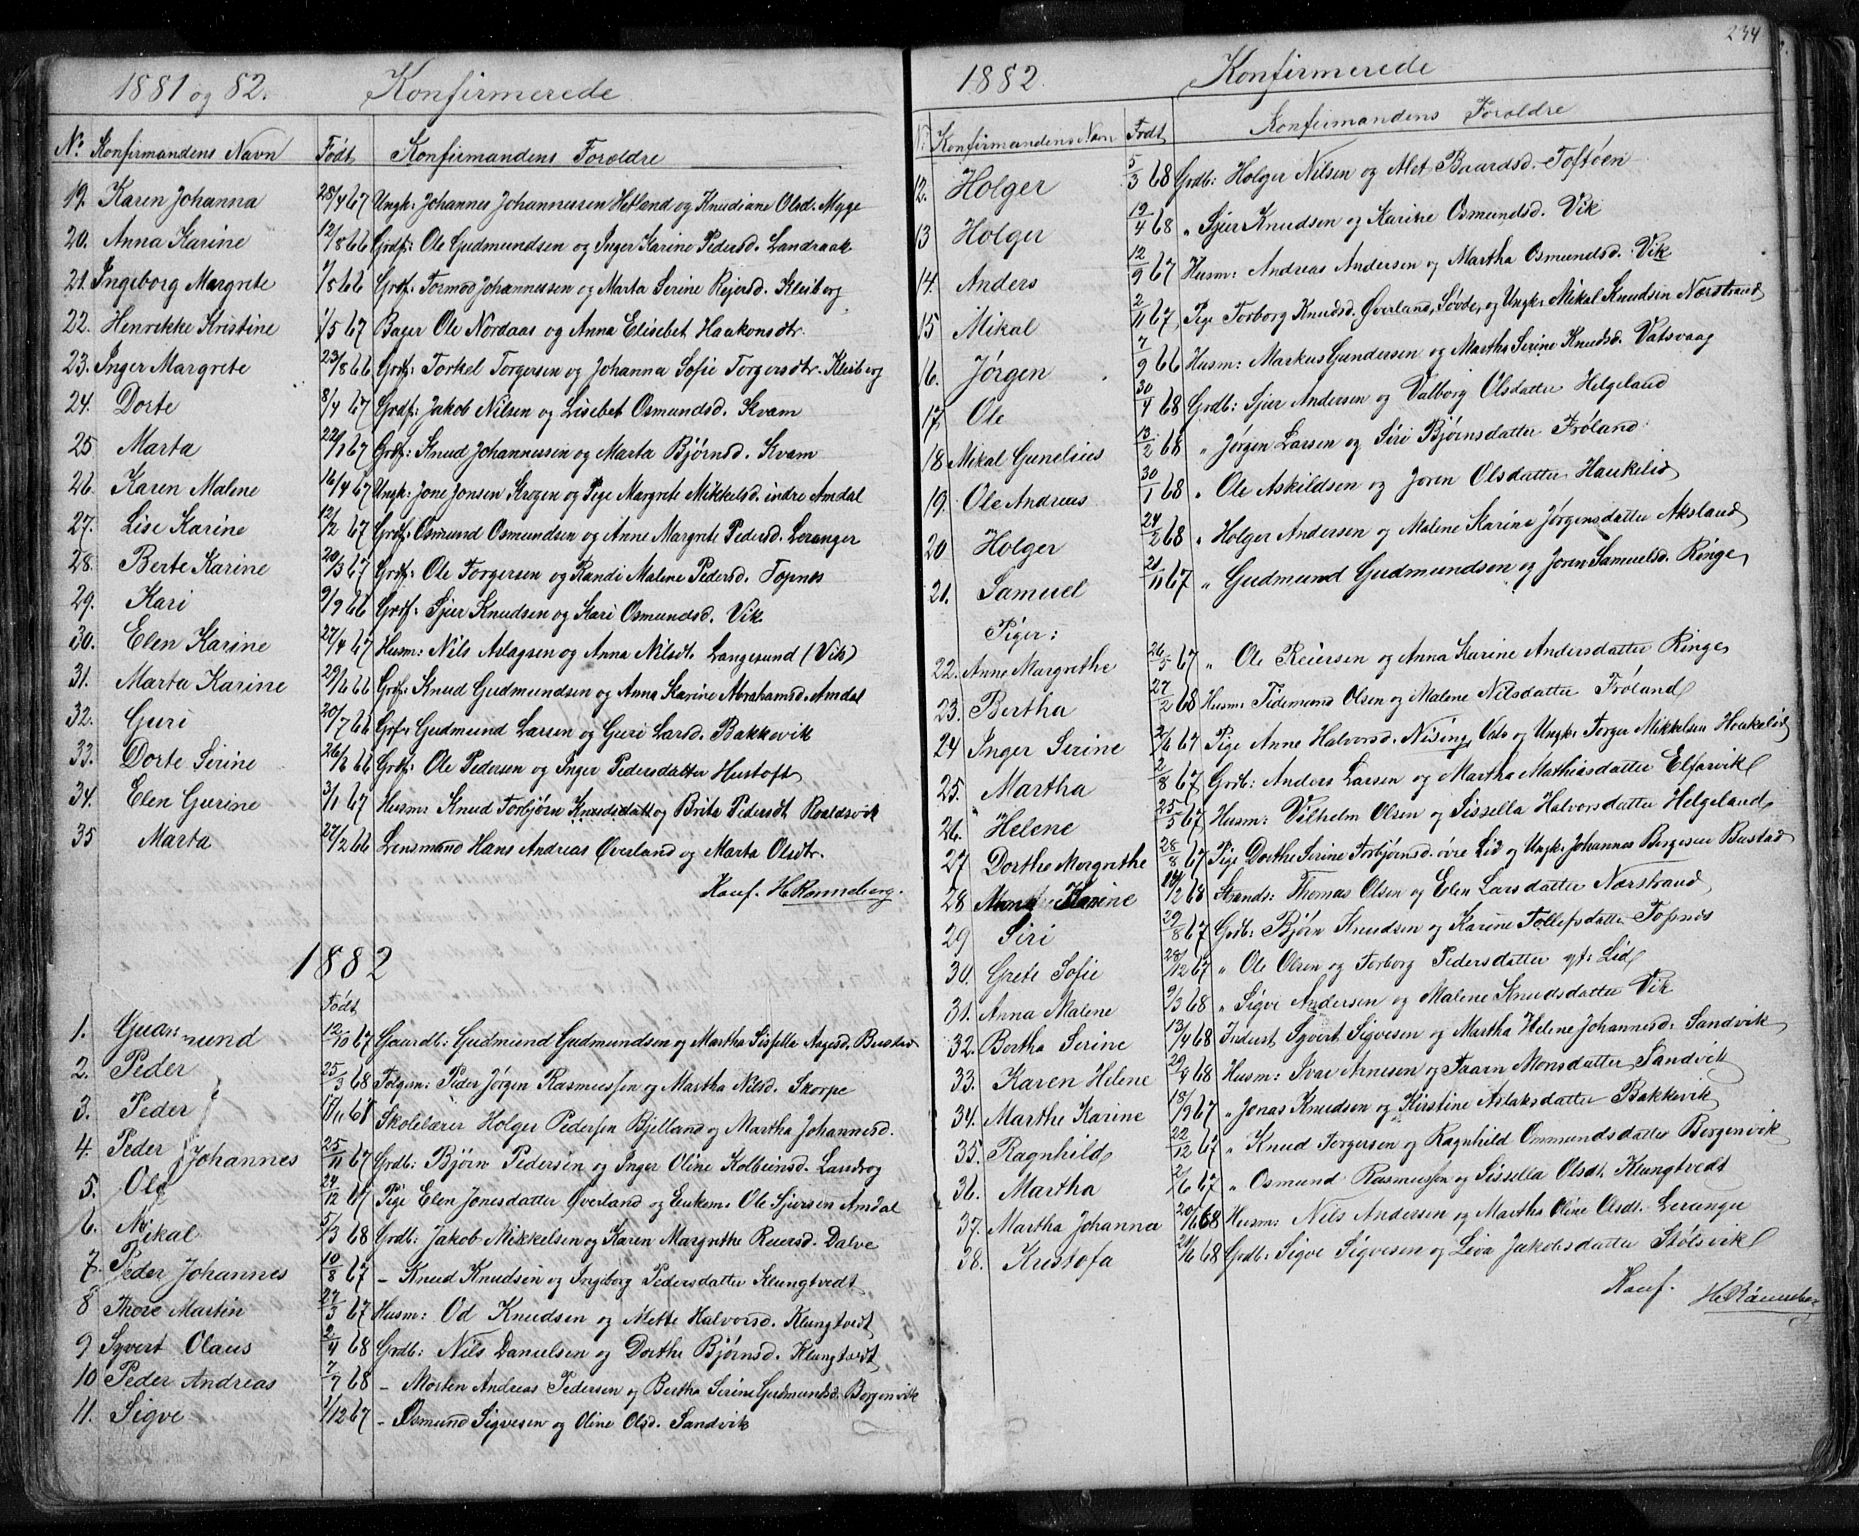 1881 og 82. Konfirmerede
No Konfirmandens Navn Født Konfirmandens Foroldre
19. Karen Johanna 28/4 67 Ungk: Johannes Johannessen Hetland og Knudiane Olsd. Myge
20. Anna Karine 12/8 66 Grdf: Ole Gudmundsen og Inger Karine Pedersd. Landraak
21. Ingeborg Margrete 1/8 66 Grdf: Tormod Johannessen og Marta Serine Rejersd. Kleiberg
22. Henrikke Kristine 1/5 67 Bager Ole Nordaas og Anna Elisebet Haakonsdtr.
23. Inger Margrete 23/8 66 Grdf: Torkel Torgersen og Johanna Sofie Torgersdtr. Kleiberg
24. Dorte 8/4 67 Grdf: Jakob Nilsen og Lisebet Osmundsd. Kvam
25 Marta 22/1 67 Grdf: Knud Johannessen og Marta Bjørnsd. Kvam
26. Karen Malene 16/4 67 Ungk: Jone Jonsen Krogen og Pige Margrete Mikkelsd. indre Amdal
27. Lise Karine 12/2 67 Grdf: Osmund Osmundsen og Anne Margrete Pedersd. Leranger
28. Berte Karine 20/3 67 Grdf: Ole Torgersen og Randi Malene Pedersd. Topnes
29. Kari 9/9 66 Grdf: Sjur Knudsen og Kari Osmundsd. Vik
30. Elen Karine 27/4 67 Husm: Nils Aslagsen og Anna Nilsdt. Langesund (Vik)
31. Marta Karine 29/6 66 Grdf: Knud Gudmundsen og Anna Karine Abrahamsd. Amdal
32. Guri 20/7 66 Grdf: Gudmund Larsen og Guri Larsd. Bakkevik
33. Dorte Serine 26/8 66 Grdf: Ole Pedersen og Inger Pedersdatter Hustoft
34. Elen Gurine 3/1 67 Husm: Knud Torbjørn Knudsdatt og Brita Pedersdt Roaldsvik
35 Marta 27/2 66 Lensmand Hans Andreas Øverland og Marta Olsdtr.
Kauf. H Rønneberg.
1882
Født
1. Gudmund 12/10 67 Gaardb: Gudmund Gudmundsen og Martha Sissella Aagesd. Bustad
2. Peder 25/3 68 Folgem: Peder Jørgen Rasmussen og Martha Nilsd. Skorpe
3. Peder 17/11 67 Skolelærer Holger Pedersen Bjelland og Martha Johannesd.
4. Peder Johannes 25/11 67 Grdb: Bjørn Pedersen og Inger Oline Kolbeinsd. Landvog
5. Ole 24/12 67 Pige Elen Jonesdatter Øverland og Enkem: Ole Sjursen Amdal
6. Mikal 5/3 68 Grdb: Jakob Mikkelsen og Karen Margrethe Reiersd. Dalve
7. Peder Johannes 10/8 67 - Knud Knudsen og Ingeborg Pedersdatter Klungtvedt
8 Thore Martin 27/3 67 Husm: Od Knudsen og Mette Halvorsd. Klungtvedt
9 Syvert Olaus 2/4 68 Grdb: Nils Danielsen og Dorthe Bjørnsd. Klungtvedt
10 Peder Andreas 7/7 68 - Morten Andreas Pedersen og Bertha Serine Gudmundsd. Borgenvik
11. Sigve 1/12 67 - Osmund Sigvesen og Oline Olsd. Sandvik
234
1882. Konfirmerede
N. Konfirmandens Navn Født Konfirmandens Foroldre
12. Holger 5/3 68 Grdb: Holger Nilsen og Alet Baardsd. Toftøen
13 Holger 19/4 68 " Sjur Knudsen og Karine Osmundsd. Vik
14. Anders 12/9 67 Husm: Andreas Andersen og Martha Osmundsd. Vik
15 Mikal 2/11 67 Pige Torborg Knudsd. Øverland, Søvde, og Ungk: Mikal Knudsen Nærstrand
16. Jørgen 7/9 66 Husm: Markus Gundersen og Martha Serine Knudsd. Vatsvaag
17. Ole 30/4 68 Grdb: Sjur Andersen og Valborg Olsdatter Helgeland
18 Mikal Gunelius 13/2 68 " Jørgen Larsen og Siri Bjørnsdatter Frøland
19. Ole Andreas 30/1 68 " Ole Askildsen og Joren Olsdatter Haukelid
20 Holger 24/2 68 " Holger Andersen og Malene Karine Jørgensdatter Aksland
21. Samuel 21/11 67 " Gudmund Gudmundsen og Joren Samuelsd. Ringe
Piger:
22. Anne Margrethe 26/5 67 " Ole Reiersen og Anna Karine Andersdatter Ringe
23. Bertha 27/2 68 Husm: Tidemand Olsen og Malene Nilsdatter Frøland
24 Inger Serine 2/6 67 Pige Anne Halvorsd. Nising, Vats og Ungk: Torger Mikkelsen Haukelid
25. Martha 2/8 67 Grdb: Anders Larsen og Martha Mathiasdatter Elfarvik
26. Helene 25/5 67 Husm: Vilhelm Olsen og Sissella Halvorsdatter Helgeland
27 Dorthe Margrethe 28/8 67 Pige Dorthe Serine Torbjørnsd. øvre Lid og Ungk: Johannes Børgesen Bustad
28 Anna Karine 14/12 68 Strands: Thomas Olsen og Elen Larsdatter Nærstrand
29 Siri 29/8 67 Grdb: Bjørn Knudsen og Karine Tollefsdatter Topnes
30. Grete Sofie 28/12 67 " Ole Olsen og Torborg Pedersdatter yt: Lid
31. Anna Malene 9/3 68 " Sigve Andersen og Malene Knudsdatter Vik
32. Bertha Serine 13/4 68 Inderst Syvert Sigvesen og Martha Helene Johannesd. Sandvik
33. Karen Helene 29/4 68 Husm: Ivar Arnesen og Taarn Monsdatter Sandvik
34. Marthe Karine 18/9 67 " Jonas Knudsen og Kirstine Aslaksdatter Bakkevik
35. Ragnhild 22/12 67 " Knud Torgersen og Ragnhild Ommundsdatter Borgenvik
36. Martha 2/6 67 " Osmund Rasmussen og Sissella Olsdt. Klungtvedt
37. Martha Johanna 20/6 68 Husm: Nils Andersen og Martha Oline Olsdt. Leranger
38. Kristofa 21/6 68 Grdb: Sigve Sigvesen og Liva Jakobsdatter Stølsvik
Kauf. H Rønneberg